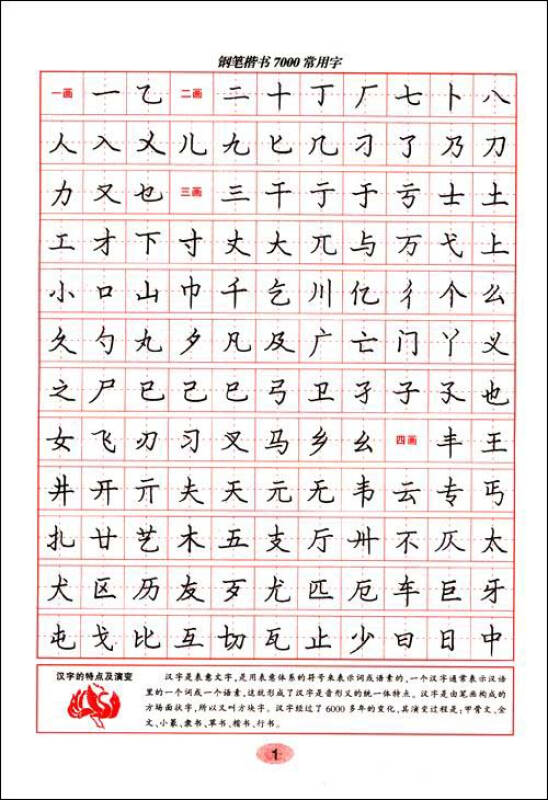 钢笔楷书7000常用字
一画 一 乙 二画 二 十 丁 厂 七 卜 八
人 入 乂 儿 九 匕 几 刁 了 乃 刀
力 又 也 三画 三 干 亍 于 亏 士 土
工 才 下 寸 丈 大 兀 与 万 弋 上
小 口 山 巾 千 乞 川 亿 彳 个 么
久 勺 丸 夕 凡 及 广 亡 门 丫 义
之 尸 已 己 巳 弓 卫 孑 子 孓 也
女 飞 刃 习 叉 马 乡 幺 四画 丰 王
井 开 亓 夫 天 元 无 韦 云 专 丐
扎 廿 艺 木 五 支 厅 卅 不 仄 太
犬 区 历 友 歹 尤 匹 厄 车 巨 牙
屯 戈 比 互 切 瓦 止 少 曰 日 中
汉字的特点及演变
汉字是表意文字,是用表意体系的符号来表示词或语素的,一个汉字通常表示汉语
里的一个词或一个语素,这就形成了汉字是音形义的统一体特点。汉字是由笔画构成的
方场面状字,所以又叫方块字。汉字经过了6000多年的变化,其演变过程是:甲骨文、金
文、小篆、隶书、草书、楷书、行书。
1